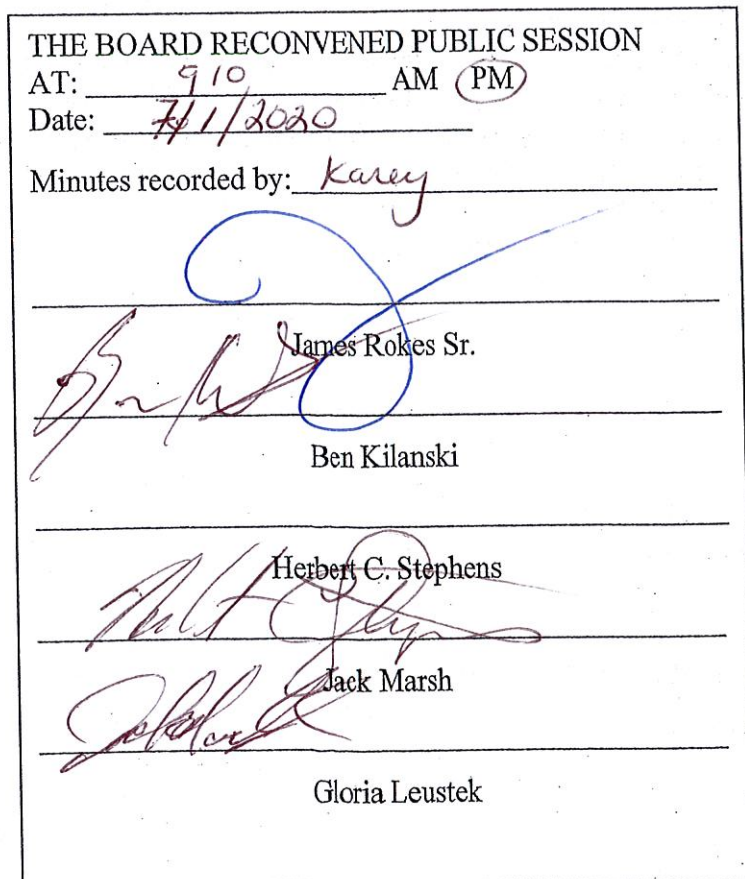 THE BOARD RECONVENED PUBLIC SESSION
AT: 910 AM PM
Date: 7/1/2020
Minutes recorded by: Karey
James Rokes Sr.
Ben Kilanski
Herbert C. Stephens
Jack Marsh
Gloria Leustek